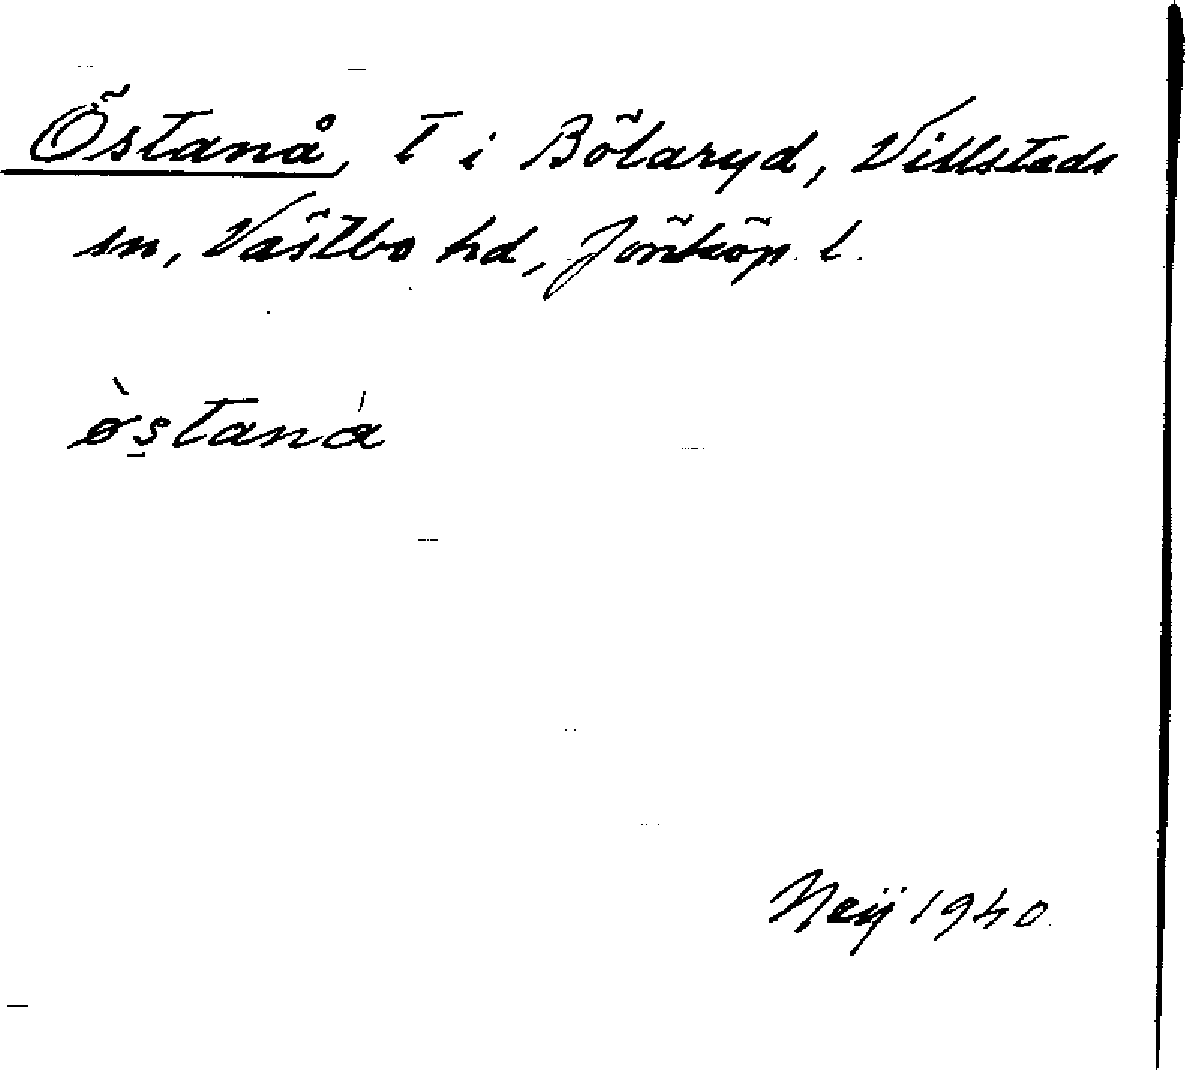 Östanå, T i Bölaryd, Villstads
sn, Västbo hd, Jönköp. l.
östaná
Neij 1940.